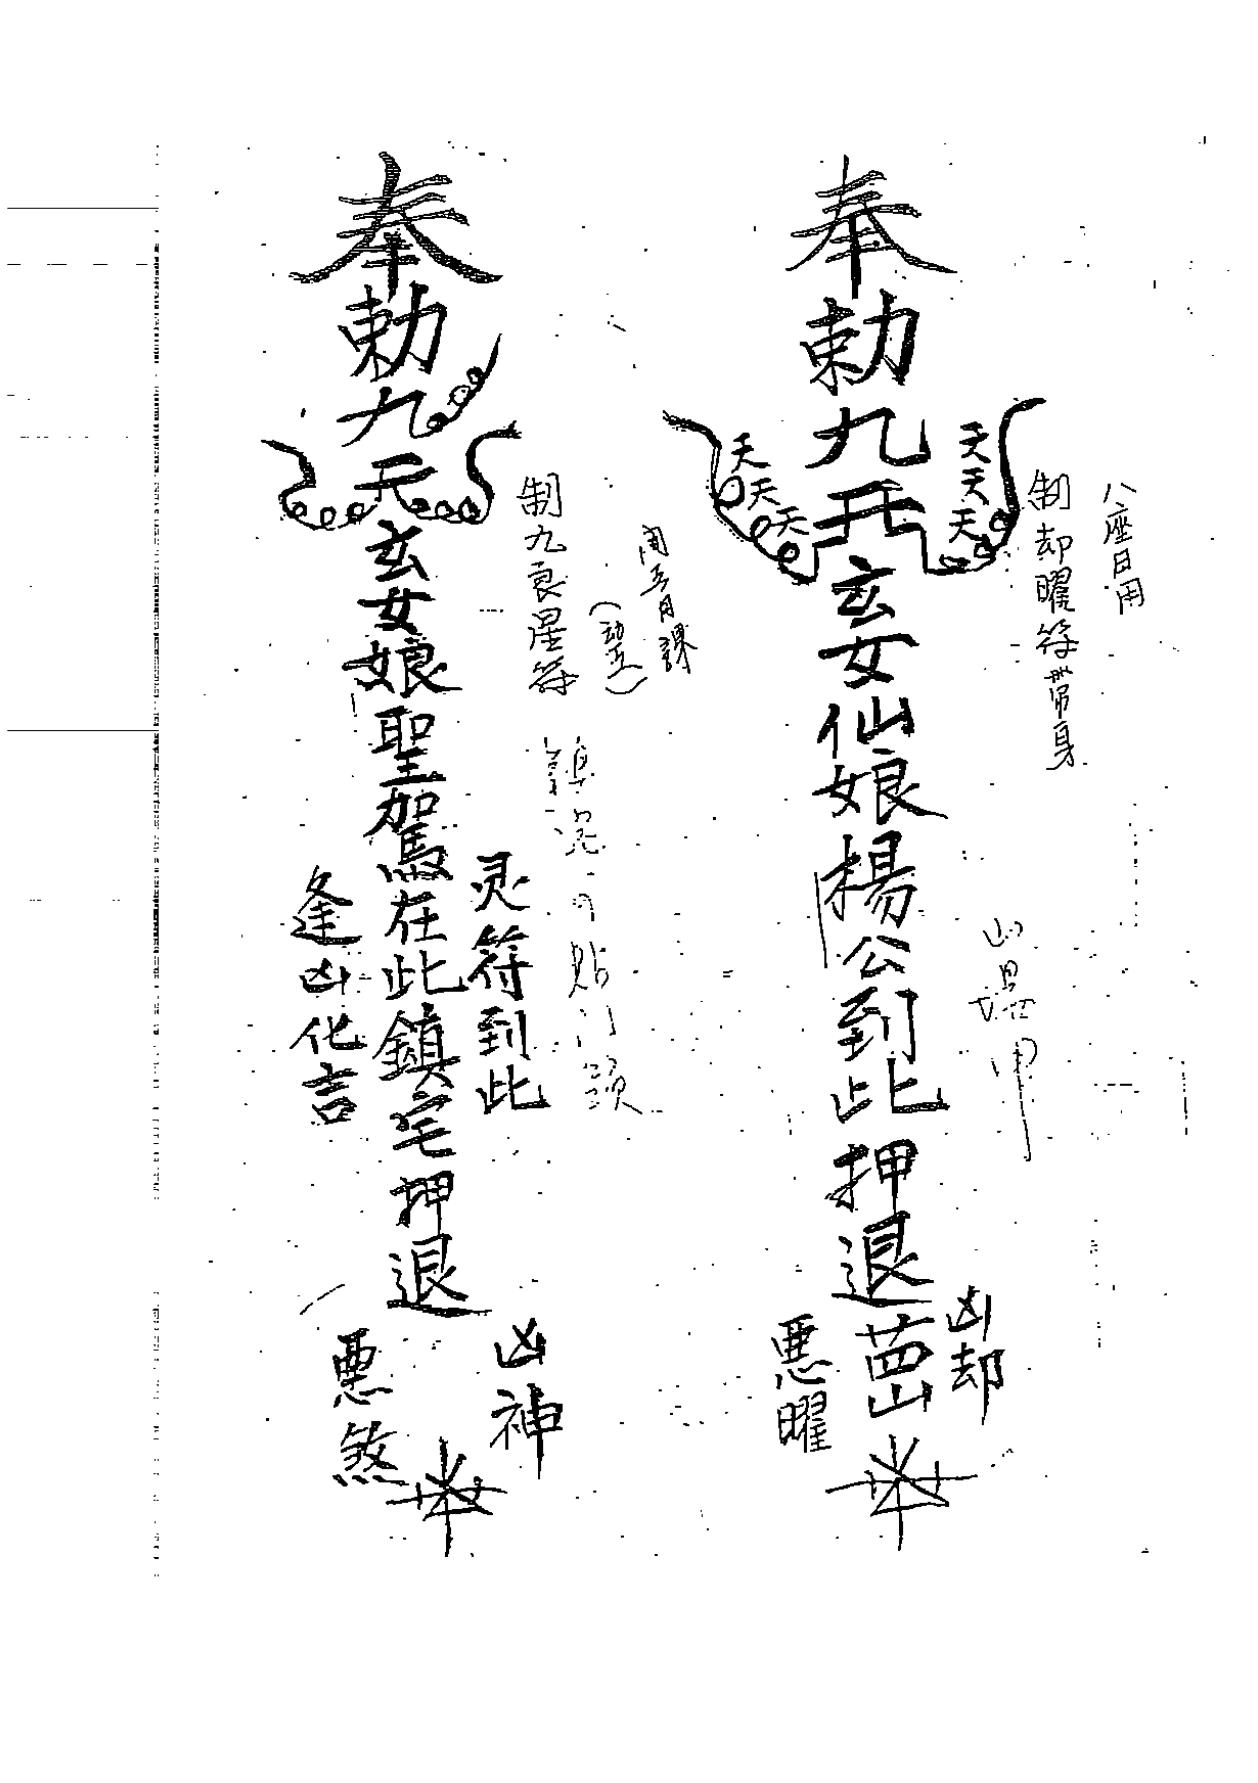 八座日用
制却曜符帶身
天天天
奉勅九天玄女仙娘楊公到此押退
天天天
凶却
惡曜
用五月課
制九良星符
奉勅九元玄女娘聖駕在此鎮宅押退
灵符到此
逢凶化吉
凶神
惡煞